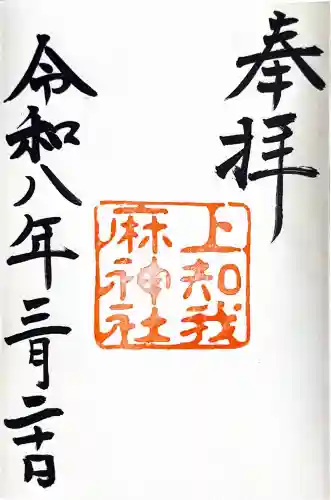 奉拝
上知我
麻神社
令和八年三月二十日